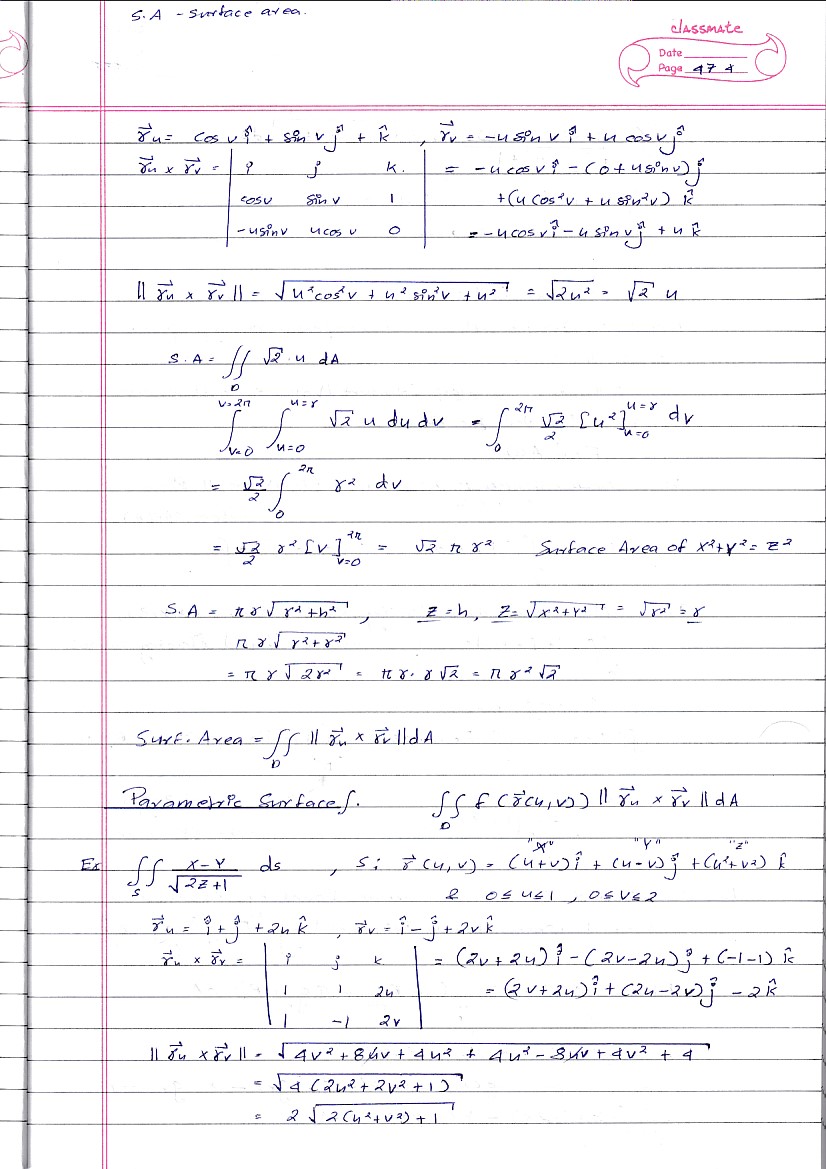 S.A - Surface area.
classmate
Date
Page 474
r⃗u = cos v î + sin v ĵ + k̂ , r⃗v = -u sin v î + u cos v ĵ
r⃗u × r⃗v = | i j k. | = -u cos v î - (0 + u sin v) ĵ
| cos v sin v 1 | + (u cos²v + u sin²v) k̂
| -u sin v u cos v 0 | = -u cos v î - u sin v ĵ + u k̂
|| r⃗u × r⃗v || = √(u² cos²v + u² sin²v + u²) = √(2u²) = √2 u
S.A = ∬_D √2 · u dA
∫_{v=0}^{v=2π} ∫_{u=0}^{u=r} √2 u du dv = ∫_0^{2π} √2/2 [u²]_{u=0}^{u=r} dv
= √2/2 ∫_0^{2π} r² dv
= √2/2 r² [v]_{v=0}^{2π} = √2 π r² Surface Area of x²+y² = z²
S.A = π r √(r² + h²) , z = h, z = √(x²+y²) = √(r²) = r
π r √(r² + r²)
= π r √(2r²) = π r · r √2 = π r² √2
Surf. Area = ∬_D || r⃗u × r⃗v || dA
Parametric Surfaces. ∬_D f(r⃗(u,v)) || r⃗u × r⃗v || dA
"X" "Y" "Z"
Ex ∬_S (x-y)/√(2z+1) ds , S: r⃗(u,v) = (u+v) î + (u-v) ĵ + (u²+v²) k̂
& 0 ≤ u ≤ 1 , 0 ≤ v ≤ 2
r⃗u = î + ĵ + 2u k̂ , r⃗v = î - ĵ + 2v k̂
r⃗u × r⃗v = | i j k | = (2v + 2u) î - (2v - 2u) ĵ + (-1-1) k̂
| 1 1 2u | = (2v + 2u) î + (2u - 2v) ĵ - 2 k̂
| 1 -1 2v |
|| r⃗u × r⃗v || = √(4v² + 8uv + 4u² + 4u² - 8uv + 4v² + 4)
= √(4(2u² + 2v² + 1))
= 2 √(2(u²+v²) + 1)